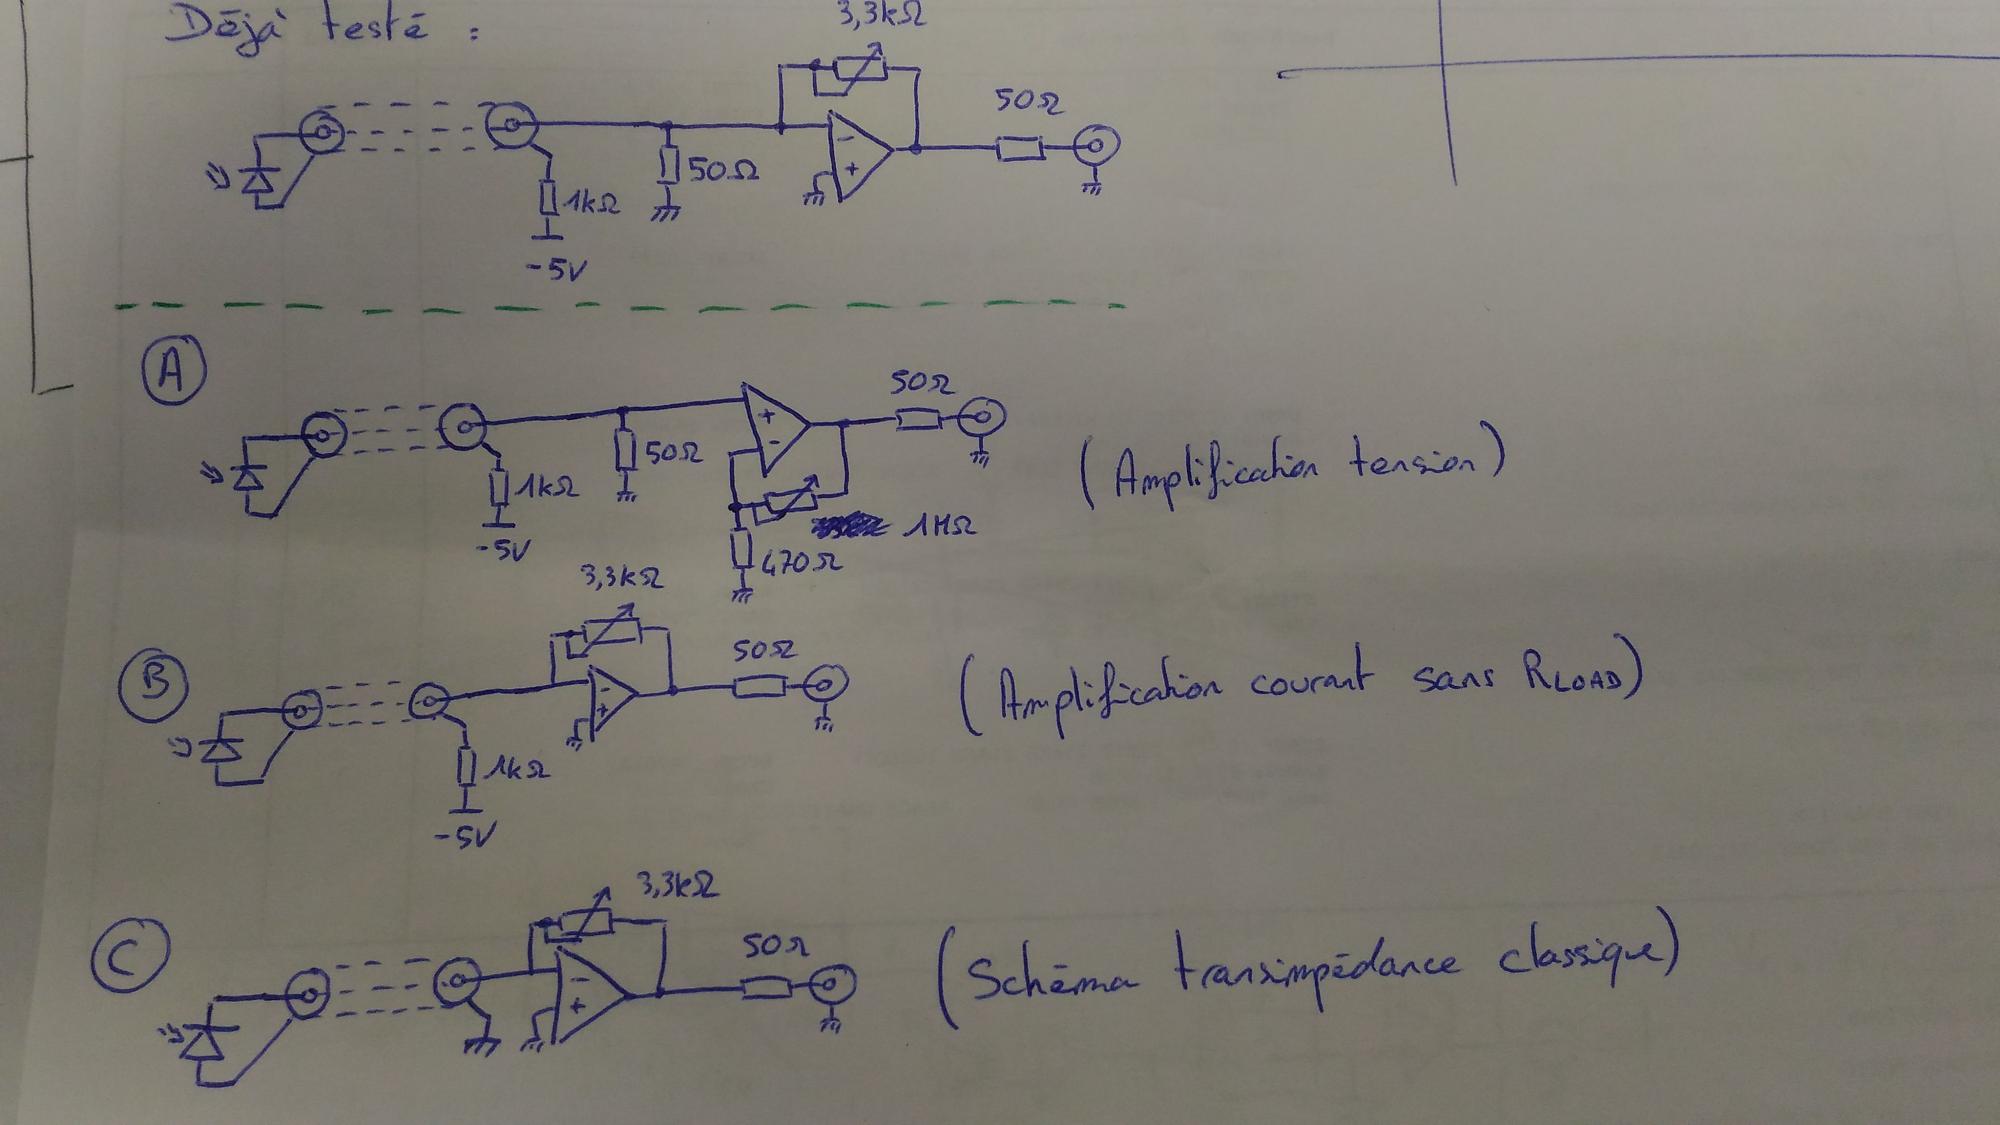 Déjà testé :
3,3kΩ
50Ω
50Ω
1kΩ
-5V
A
50Ω
50Ω
1kΩ
-5V
1MΩ
470Ω
(Amplification tension)
B
3,3kΩ
50Ω
1kΩ
-5V
(Amplification courant sans RLOAD)
C
3,3kΩ
50Ω
(Schéma transimpédance classique)